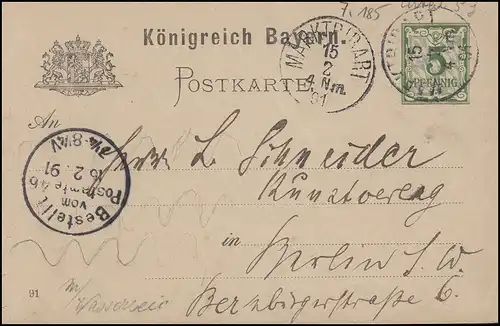 7. 185
Königreich Bayern.
POSTKARTE.
MARKTBIBART
15
2
4. Nm.
91
5
PFENNIG
An
Herrn L. Schneider
Kunstverlag
in
Berlin S. W.
Bernburgerstraße 6.
Bestellt
vom
Postamte 46
6 2. 91
91